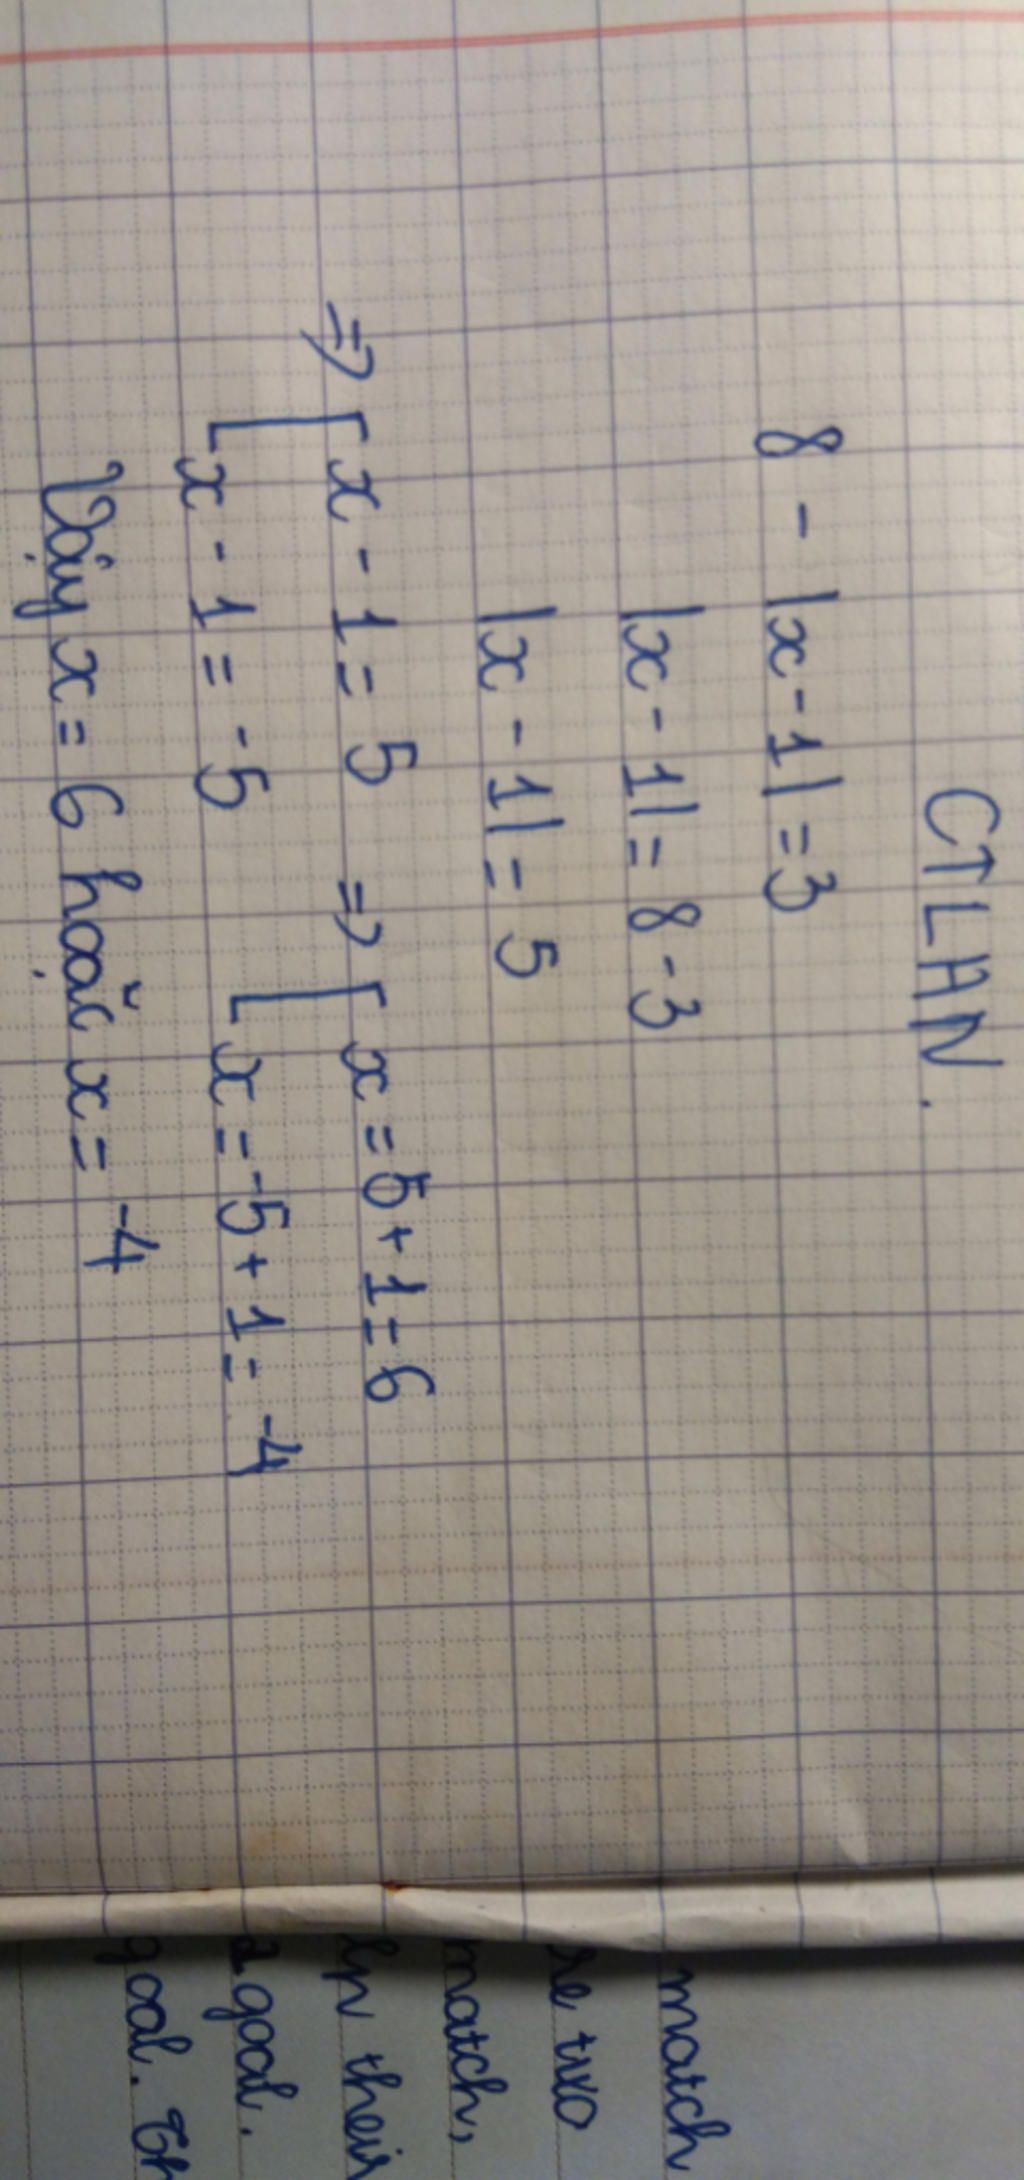 CTLHN.
8 - |x-1| = 3
|x - 1| = 8 - 3
|x - 1| = 5
=> [ x - 1 = 5 => [ x = 5 + 1 = 6
[ x - 1 = -5 [ x = -5 + 1 = -4
Vậy x = 6 hoặc x = -4
match
re two
match,
their
2 goal.
goal. Th